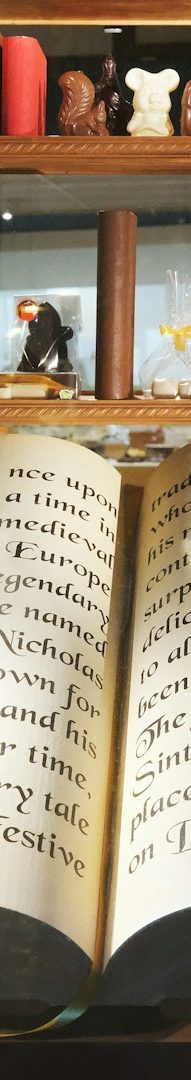 nce upon
a time in
medieval
Europe
egendary
e named
Nicholas
own for
and his
r time,
ry tale
Festive
trad
who
his
cont
surp
delic
to al
been
The
Sint
place
on D